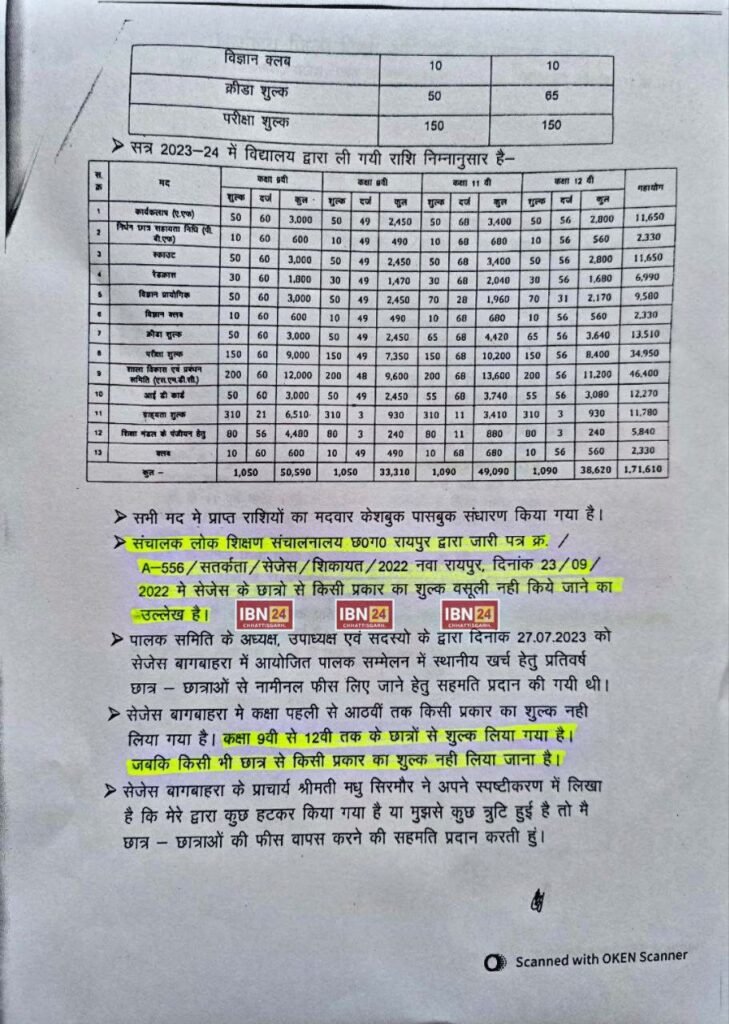 विज्ञान क्लब 10 10
क्रीडा शुल्क 50 65
परीक्षा शुल्क 150 150
➤ सत्र 2023–24 में विद्यालय द्वारा ली गयी राशि निम्नानुसार है–
स. क्र मद कक्षा 9वी कक्षा 9वी कक्षा 11 वी कक्षा 12 वी महायोग
शुल्क दर्ज कुल शुल्क दर्ज कुल शुल्क दर्ज कुल शुल्क दर्ज कुल
1 कार्यकलाप (ए.एफ) 50 60 3,000 50 49 2,450 50 68 3,400 50 56 2,800 11,650
2 निर्धन छात्र सहायता निधि (पी. बी.एफ) 10 60 600 10 49 490 10 68 680 10 56 560 2,330
3 स्काउट 50 60 3,000 50 49 2,450 50 68 3,400 50 56 2,800 11,650
4 रेडक्रास 30 60 1,800 30 49 1,470 30 68 2,040 30 56 1,680 6,990
5 विज्ञान प्रायोगिक 50 60 3,000 50 49 2,450 70 28 1,960 70 31 2,170 9,580
6 विज्ञान क्लब 10 60 600 10 49 490 10 68 680 10 56 560 2,330
7 क्रीडी शुल्क 50 60 3,000 50 49 2,450 65 68 4,420 65 56 3,640 13,510
8 परीक्षा शुल्क 150 60 9,000 150 49 7,350 150 68 10,200 150 56 8,400 34,950
9 शाला विकास एवं प्रबंधन समिति (एस.एम.डी.सी.) 200 60 12,000 200 48 9,600 200 68 13,600 200 56 11,200 46,400
10 आई डी कार्ड 50 60 3,000 50 49 2,450 55 68 3,740 55 56 3,080 12,270
11 शुल्क 310 21 6,510 310 3 930 310 11 3,410 310 3 930 11,780
12 शिक्षा मंडल के पंजीयन हेतु 80 56 4,480 80 3 240 80 11 880 80 3 240 5,840
13 क्लब 10 60 600 10 49 490 10 68 680 10 56 560 2,330
कुल – 1,050 50,590 1,050 33,310 1,090 49,090 1,090 38,620 1,71,610
➤ सभी मद मे प्राप्त राशियों का मदवार केशबुक पासबुक संधारण किया गया है।
➤ संचालक लोक शिक्षण संचालनालय छ0ग0 रायपुर द्वारा जारी पत्र क्र. /
A–556/सतर्कता/सेजेस/शिकायत/2022 नवा रायपुर, दिनांक 23/09/
2022 मे सेजेस के छात्रो से किसी प्रकार का शुल्क वसूली नही किये जाने का
उल्लेख है।
IBN 24 CHHATTISGARH IBN 24 CHHATTISGARH IBN 24 CHHATTISGARH
➤ पालक समिति के अध्यक्ष, उपाध्यक्ष एवं सदस्यो के द्वारा दिनांक 27.07.2023 को
सेजेस बागबाहरा में आयोजित पालक सम्मेलन में स्थानीय खर्च हेतु प्रतिवर्ष
छात्र – छात्राओं से नामीनल फीस लिए जाने हेतु सहमति प्रदान की गयी थी।
➤ सेजेस बागबाहरा मे कक्षा पहली से आठवीं तक किसी प्रकार का शुल्क नही
लिया गया है। कक्षा 9वी से 12वी तक के छात्रों से शुल्क लिया गया है।
जबकि किसी भी छात्र से किसी प्रकार का शुल्क नही लिया जाना है।
➤ सेजेस बागबाहरा के प्राचार्य श्रीमती मधु सिरमौर ने अपने स्पष्टीकरण में लिखा
है कि मेरे द्वारा कुछ हटकर किया गया है या मुझसे कुछ त्रुटि हुई है तो मै
छात्र – छात्राओं की फीस वापस करने की सहमति प्रदान करती हुं।
Scanned with OKEN Scanner